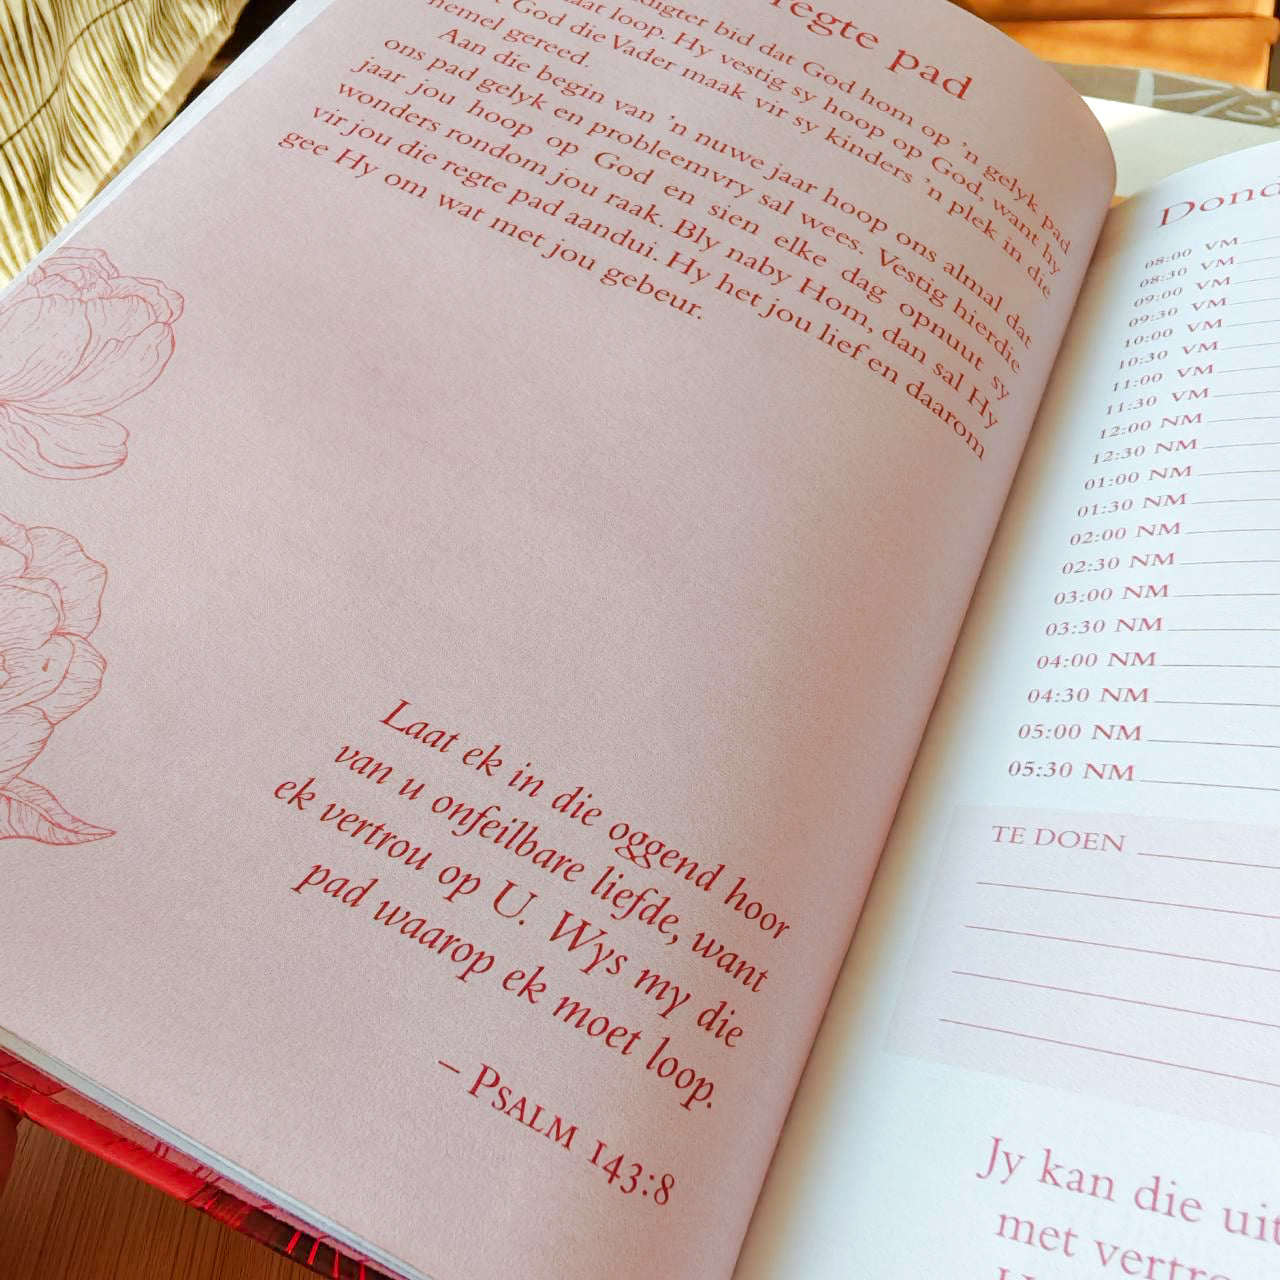 regte pad
bid dat God hom op 'n gelyk pad
laat loop. Hy vestig sy hoop op God, want hy
God die Vader maak vir sy kinders 'n plek in die
hemel gereed.
Aan die begin van 'n nuwe jaar hoop ons almal dat
ons pad gelyk en probleemvry sal wees. Vestig hierdie
jaar jou hoop op God en sien elke dag opnuut sy
wonders rondom jou raak. Bly naby Hom, dan sal Hy
vir jou die regte pad aandui. Hy het jou lief en daarom
gee Hy om wat met jou gebeur.
Laat ek in die oggend hoor
van u onfeilbare liefde, want
ek vertrou op U. Wys my die
pad waarop ek moet loop.
– PSALM 143:8
08:00 VM
08:30 VM
09:00 VM
09:30 VM
10:00 VM
10:30 VM
11:00 VM
11:30 VM
12:00 NM
12:30 NM
01:00 NM
01:30 NM
02:00 NM
02:30 NM
03:00 NM
03:30 NM
04:00 NM
04:30 NM
05:00 NM
05:30 NM
TE DOEN
Jy kan die
met